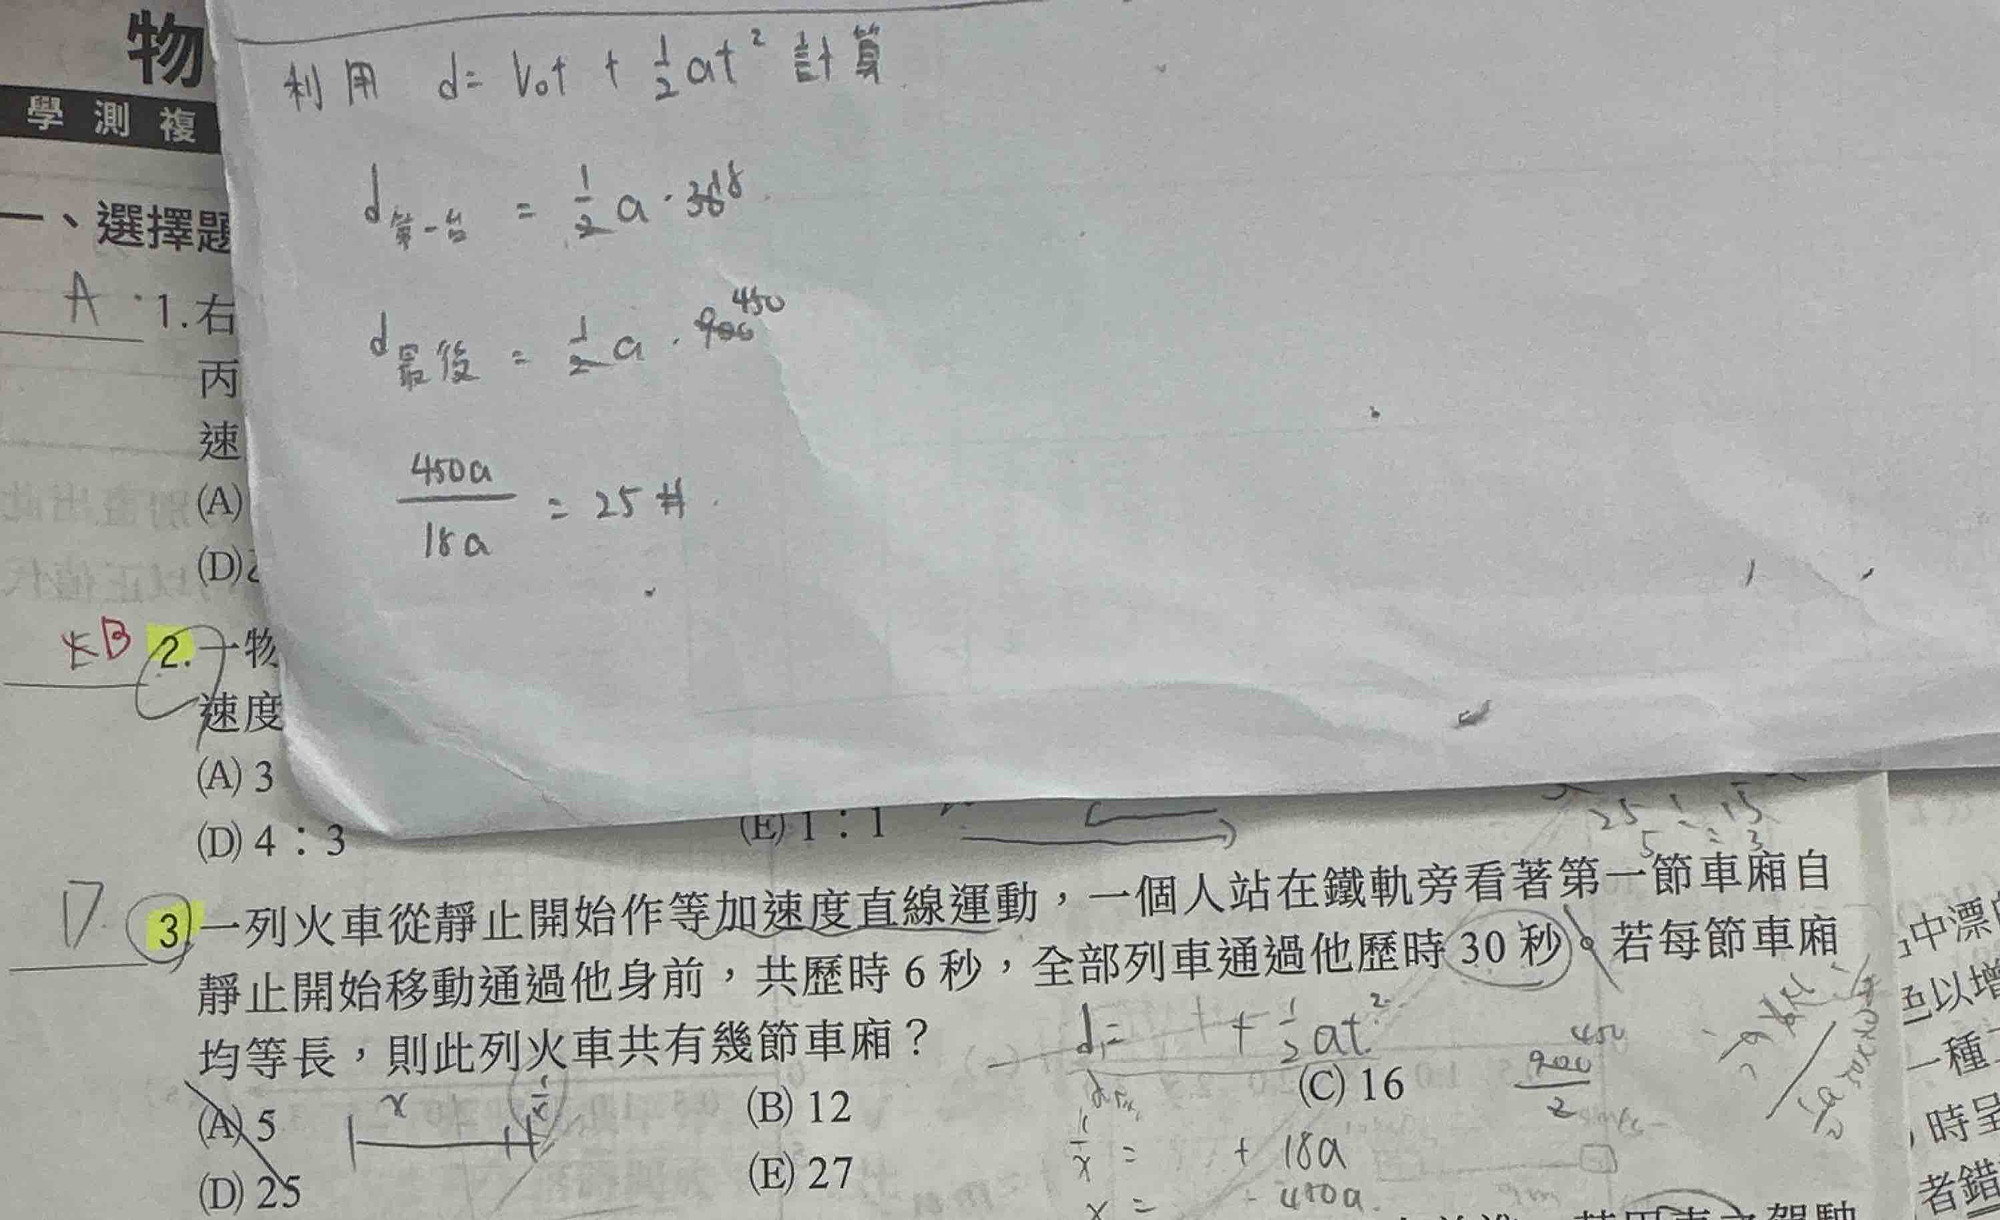 物
學測複
利用 d = V₀t + ½at² 計算
d第一台 = ½a · 36 18
一、選擇題
A 1. 右
d最後 = ½a · 900 450
丙
速
450a / 18a = 25 #
(A)
(D)乙
E B 2. 一物
速度
(A) 3
(D) 4：3
(E) 1：1
25 : 15
5 : 3
D 3. 一列火車從靜止開始作等加速度直線運動，一個人站在鐵軌旁看著第一節車廂自
靜止開始移動通過他身前，共歷時 6 秒，全部列車通過他歷時 30 秒。若每節車廂
均等長，則此列火車共有幾節車廂？
d = + ½at²
(A) 5
(B) 12
(C) 16
x 1/x
900 450 / 2
1/x = + 18a
(D) 25
(E) 27
x = 450a
中漂
以增
一種
，時呈
者錯